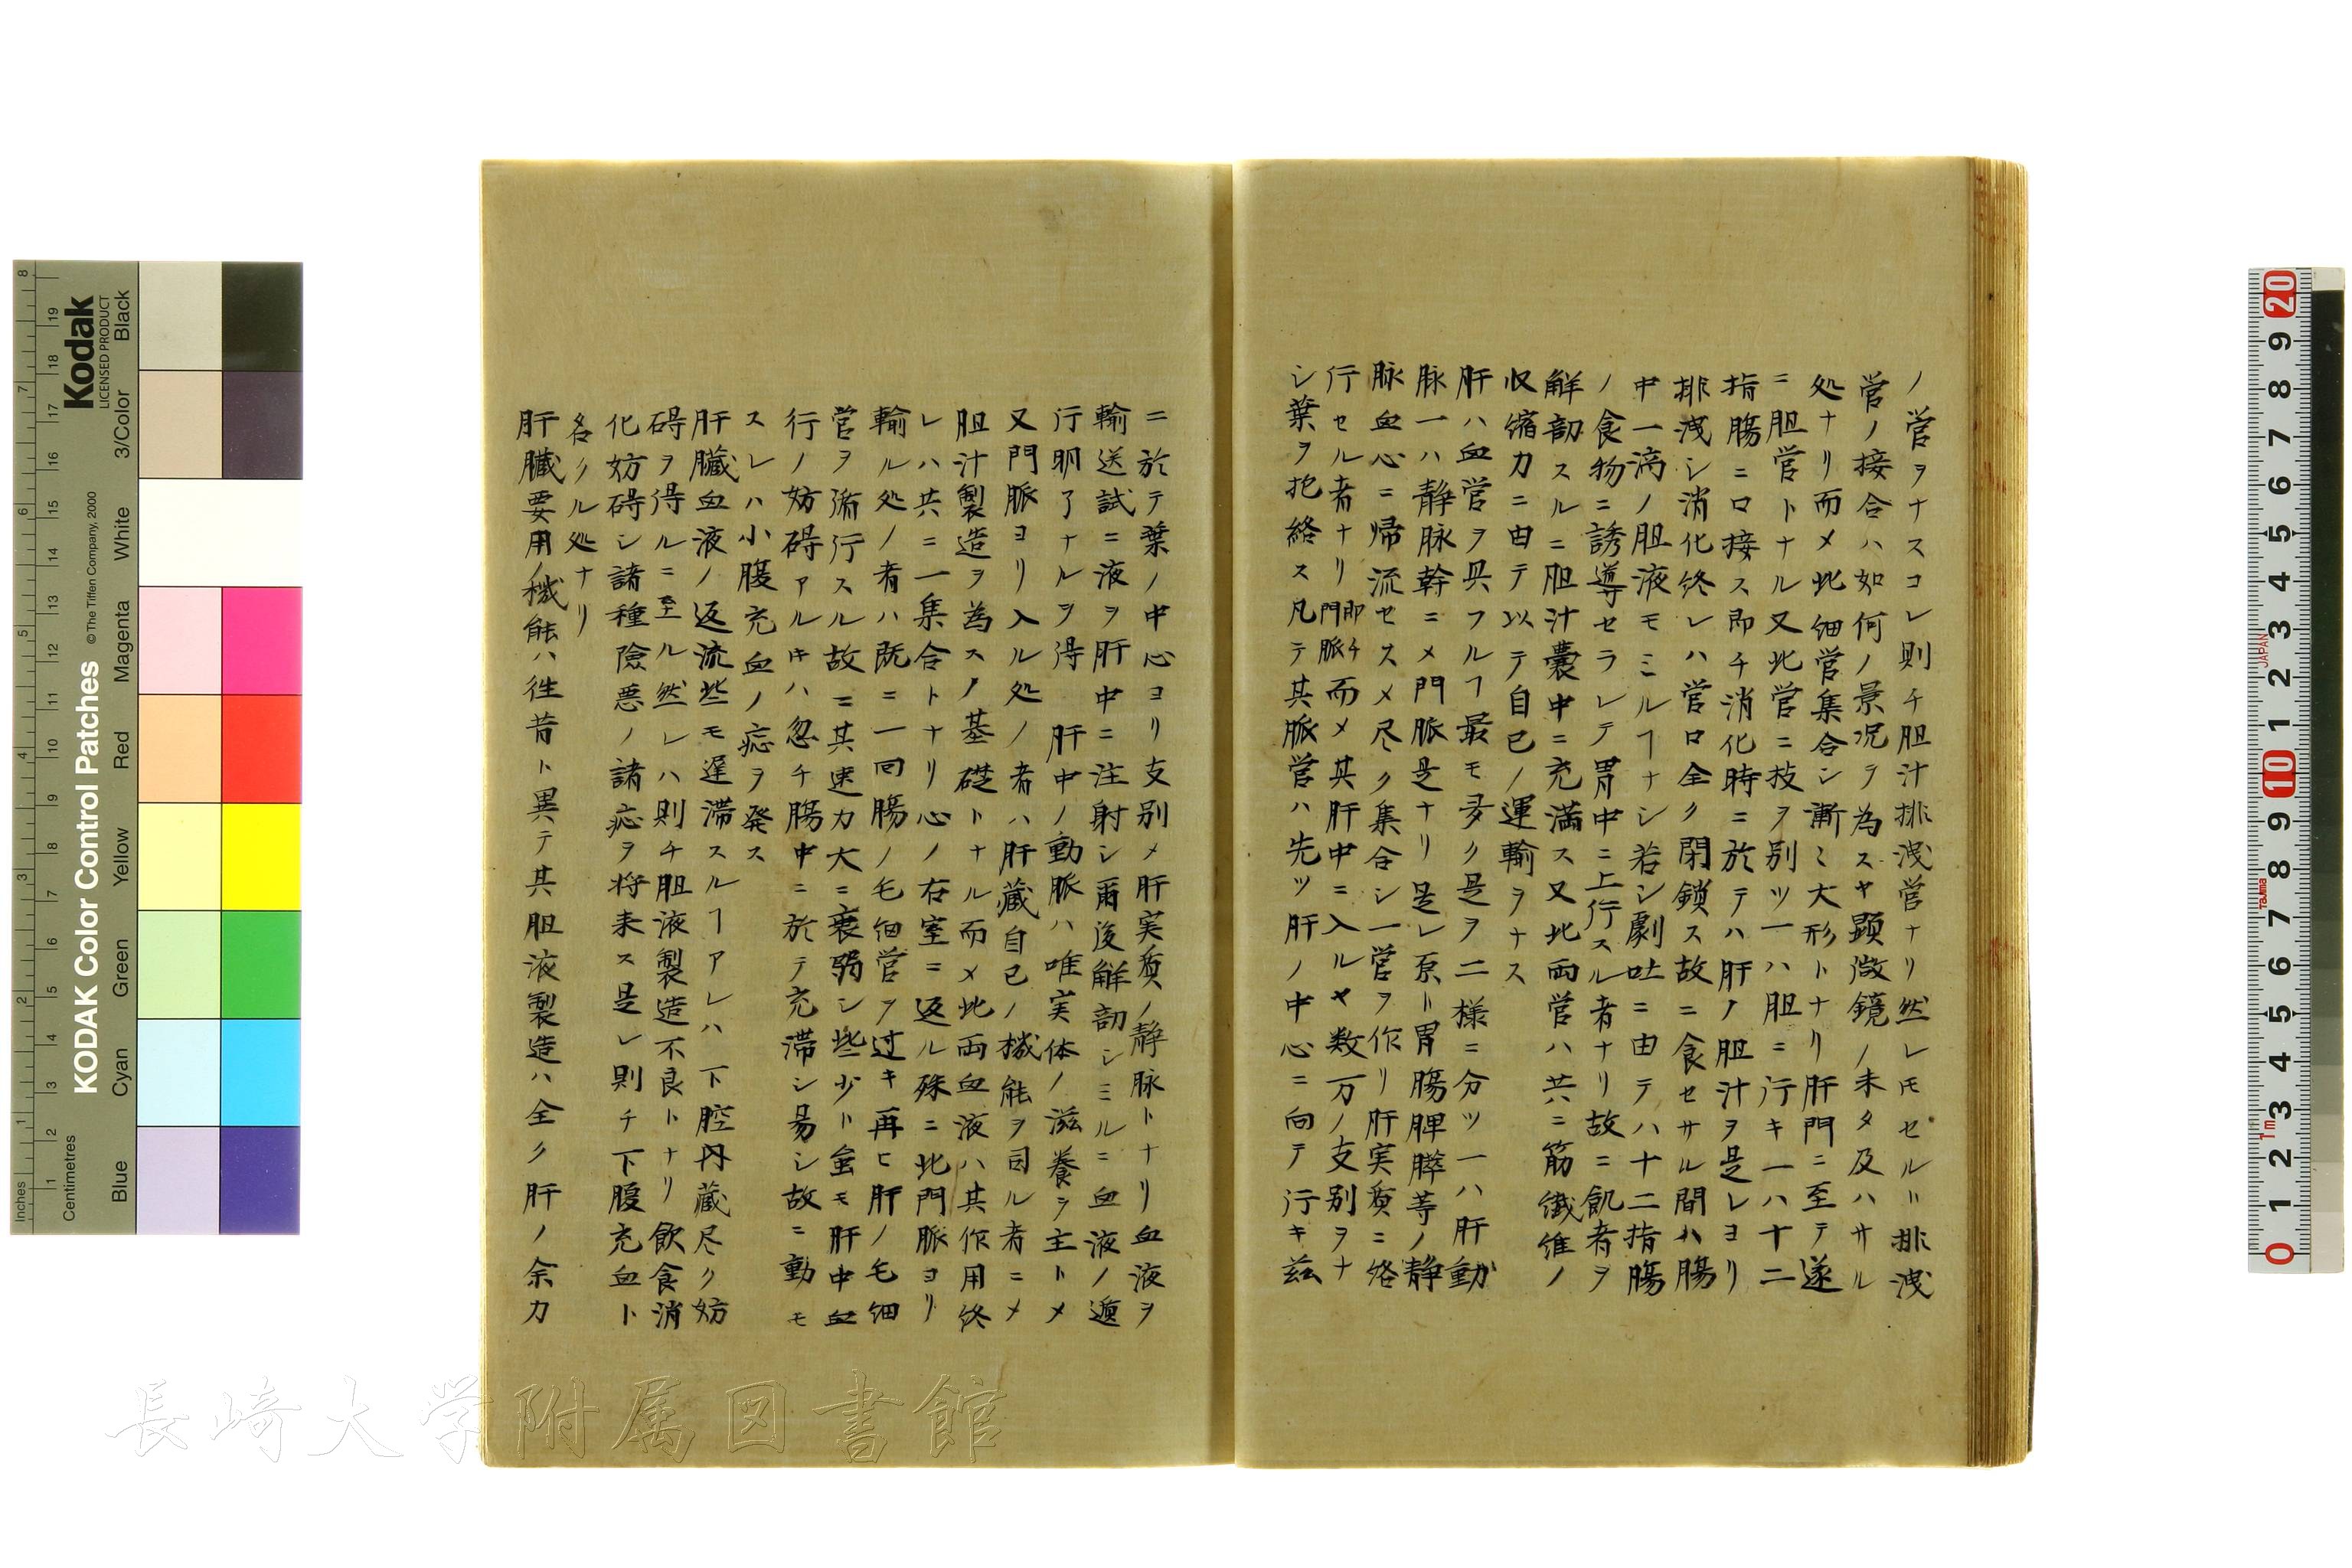 ノ管ヲナスコレ則チ胆汁排泄管ナリ然レ𪜈セル井排泄
管ノ接合ハ如何ノ景況ヲ為スヤ顕微鏡ノ未タ及ハサル
処ナリ而メ此細管集合シ漸〻大形トナリ肝門ニ至テ遂
ニ胆管トナル又此管ニ技ヲ別ツ一ハ胆ニ行キ一ハ十二
指腸ニ口接ス即チ消化時ニ於テハ肝ノ胆汁ヲ是レヨリ
排泄シ消化終レハ管口全ク閉鎖ス故ニ食セサル間ハ腸
中一滴ノ胆液モミルヿナシ若シ劇吐ニ由テハ十二指腸
ノ食物ニ誘導セラレテ胃中ニ上行スル者ナリ故ニ飢者ヲ
解剖スルニ胆汁嚢中ニ充満ス又此両管ハ共ニ筋繊維ノ
収縮力ニ由テ以テ自己ノ運輸ヲナス
肝ハ血管ヲ具フルヿ最モ多ク是ヲ二様ニ分ツ一ハ肝動
脉一ハ静脉幹ニメ門脈是ナリ是レ原ト胃腸脾膵等ノ静
脉血心ニ帰流セスメ尽ク集合シ一管ヲ作リ肝実質ニ絡
行セル者ナリ即チ門脈而メ其肝中ニ入ルヤ数万ノ支別ヲナ
シ葉ヲ抱絡ス凡テ其脈管ハ先ツ肝ノ中心ニ向テ行キ茲
ニ於テ葉ノ中心ヨリ支別メ肝実質ノ静脉トナリ血液ヲ
輸送試ニ液ヲ肝中ニ注射シ爾後解剖シミルニ血液ノ遁
行明了ナルヲ得 肝中ノ動脈ハ唯実体ノ滋養ヲ主トメ
又門脈ヨリ入ル処ノ者ハ肝蔵自己ノ機能ヲ司ル者ニメ
胆汁製造ヲ為スノ基礎トナル而メ此両血液ハ其作用終
レハ共ニ一集合トナリ心ノ右室ニ返ル殊ニ此門脈ヨリ
輸ル処ノ者ハ既ニ一回腸ノ毛細管ヲ过キ再ヒ肝ノ毛細
管ヲ流行スル故ニ其速力大ニ衰弱シ些少ト雖モ肝中血
行ノ妨碍アル𪜈ハ忽チ腸中ニ於テ充滞シ易シ故ニ動モ
スレハ小腹充血ノ症ヲ発ス
肝臓血液ノ返流些モ遅滞スルヿアレハ 下腔内蔵尽ク妨
碍ヲ得ルニ至ル然レハ則チ胆液製造不良トナリ飲食消
化妨碍シ諸種險悪ノ諸症ヲ将来ス是レ則チ下腹充血ト
名クル処ナリ
肝臓要用ノ機能ハ往昔ト異テ其胆液製造ハ全ク肝ノ余力
長崎大学附属図書館
KODAK Color Control Patches © The Tiffen Company, 2000
Kodak
LICENSED PRODUCT
Inches
Centimetres
Blue Cyan Green Yellow Magenta Red White 3/Color Black
JAPAN
TAJIMA
1m